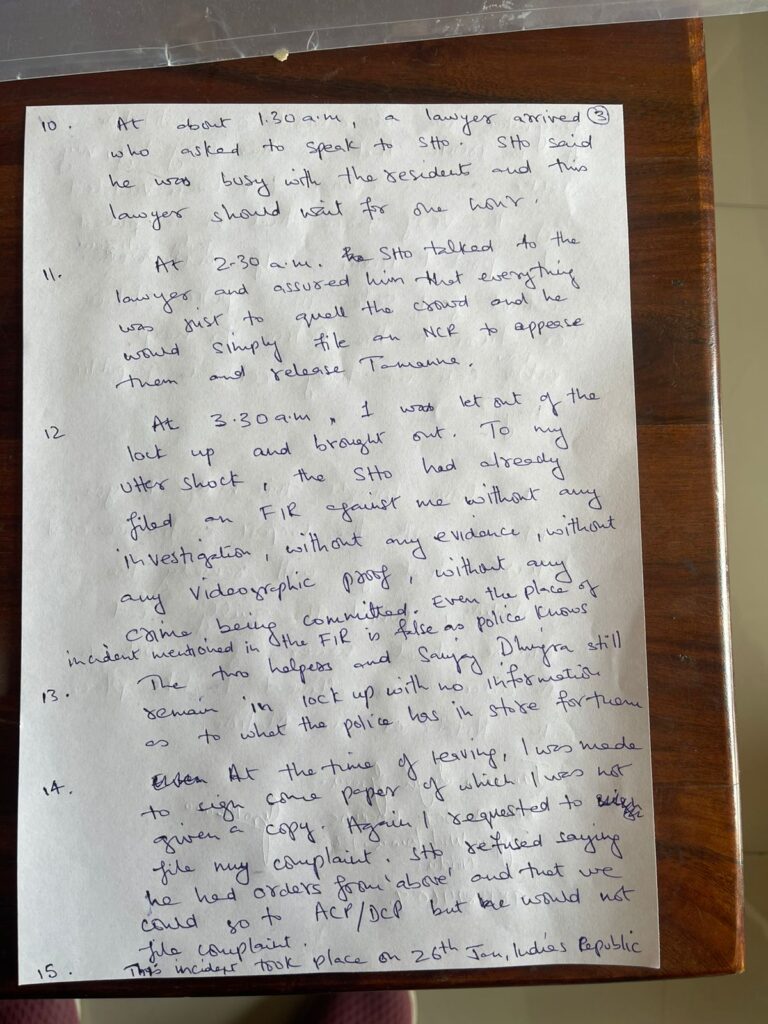 10. At about 1.30 a.m, a lawyer arrived 3
who asked to speak to SHO. SHO said
he was busy with the resident and this
lawyer should wait for one hour.
11. At 2-30 a.m. SHO talked to the
lawyer and assured him that everything
was just to quell the crowd and he
would simply file an NCR to appease
them and release Tamanna.
12 At 3.30 a.m, I was let out of the
lock up and brought out. To my
utter shock, the SHO had already
filed an FIR against me without any
investigation, without any evidence, without
any videographic proof, without any
crime being committed. Even the place of
incident mentioned in the FIR is false as police knows
13. The two helpers and Sanjay Dhingra still
remain in lock up with no information
as to what the police has in store for them
14. At the time of leaving, I was made
to sign some paper of which I was not
given a copy. Again I requested to
file my complaint. SHO refused saying
he had orders from 'above' and that we
could go to ACP/DCP but he would not
file complaint.
15. This incident took place on 26th Jan, India's Republic